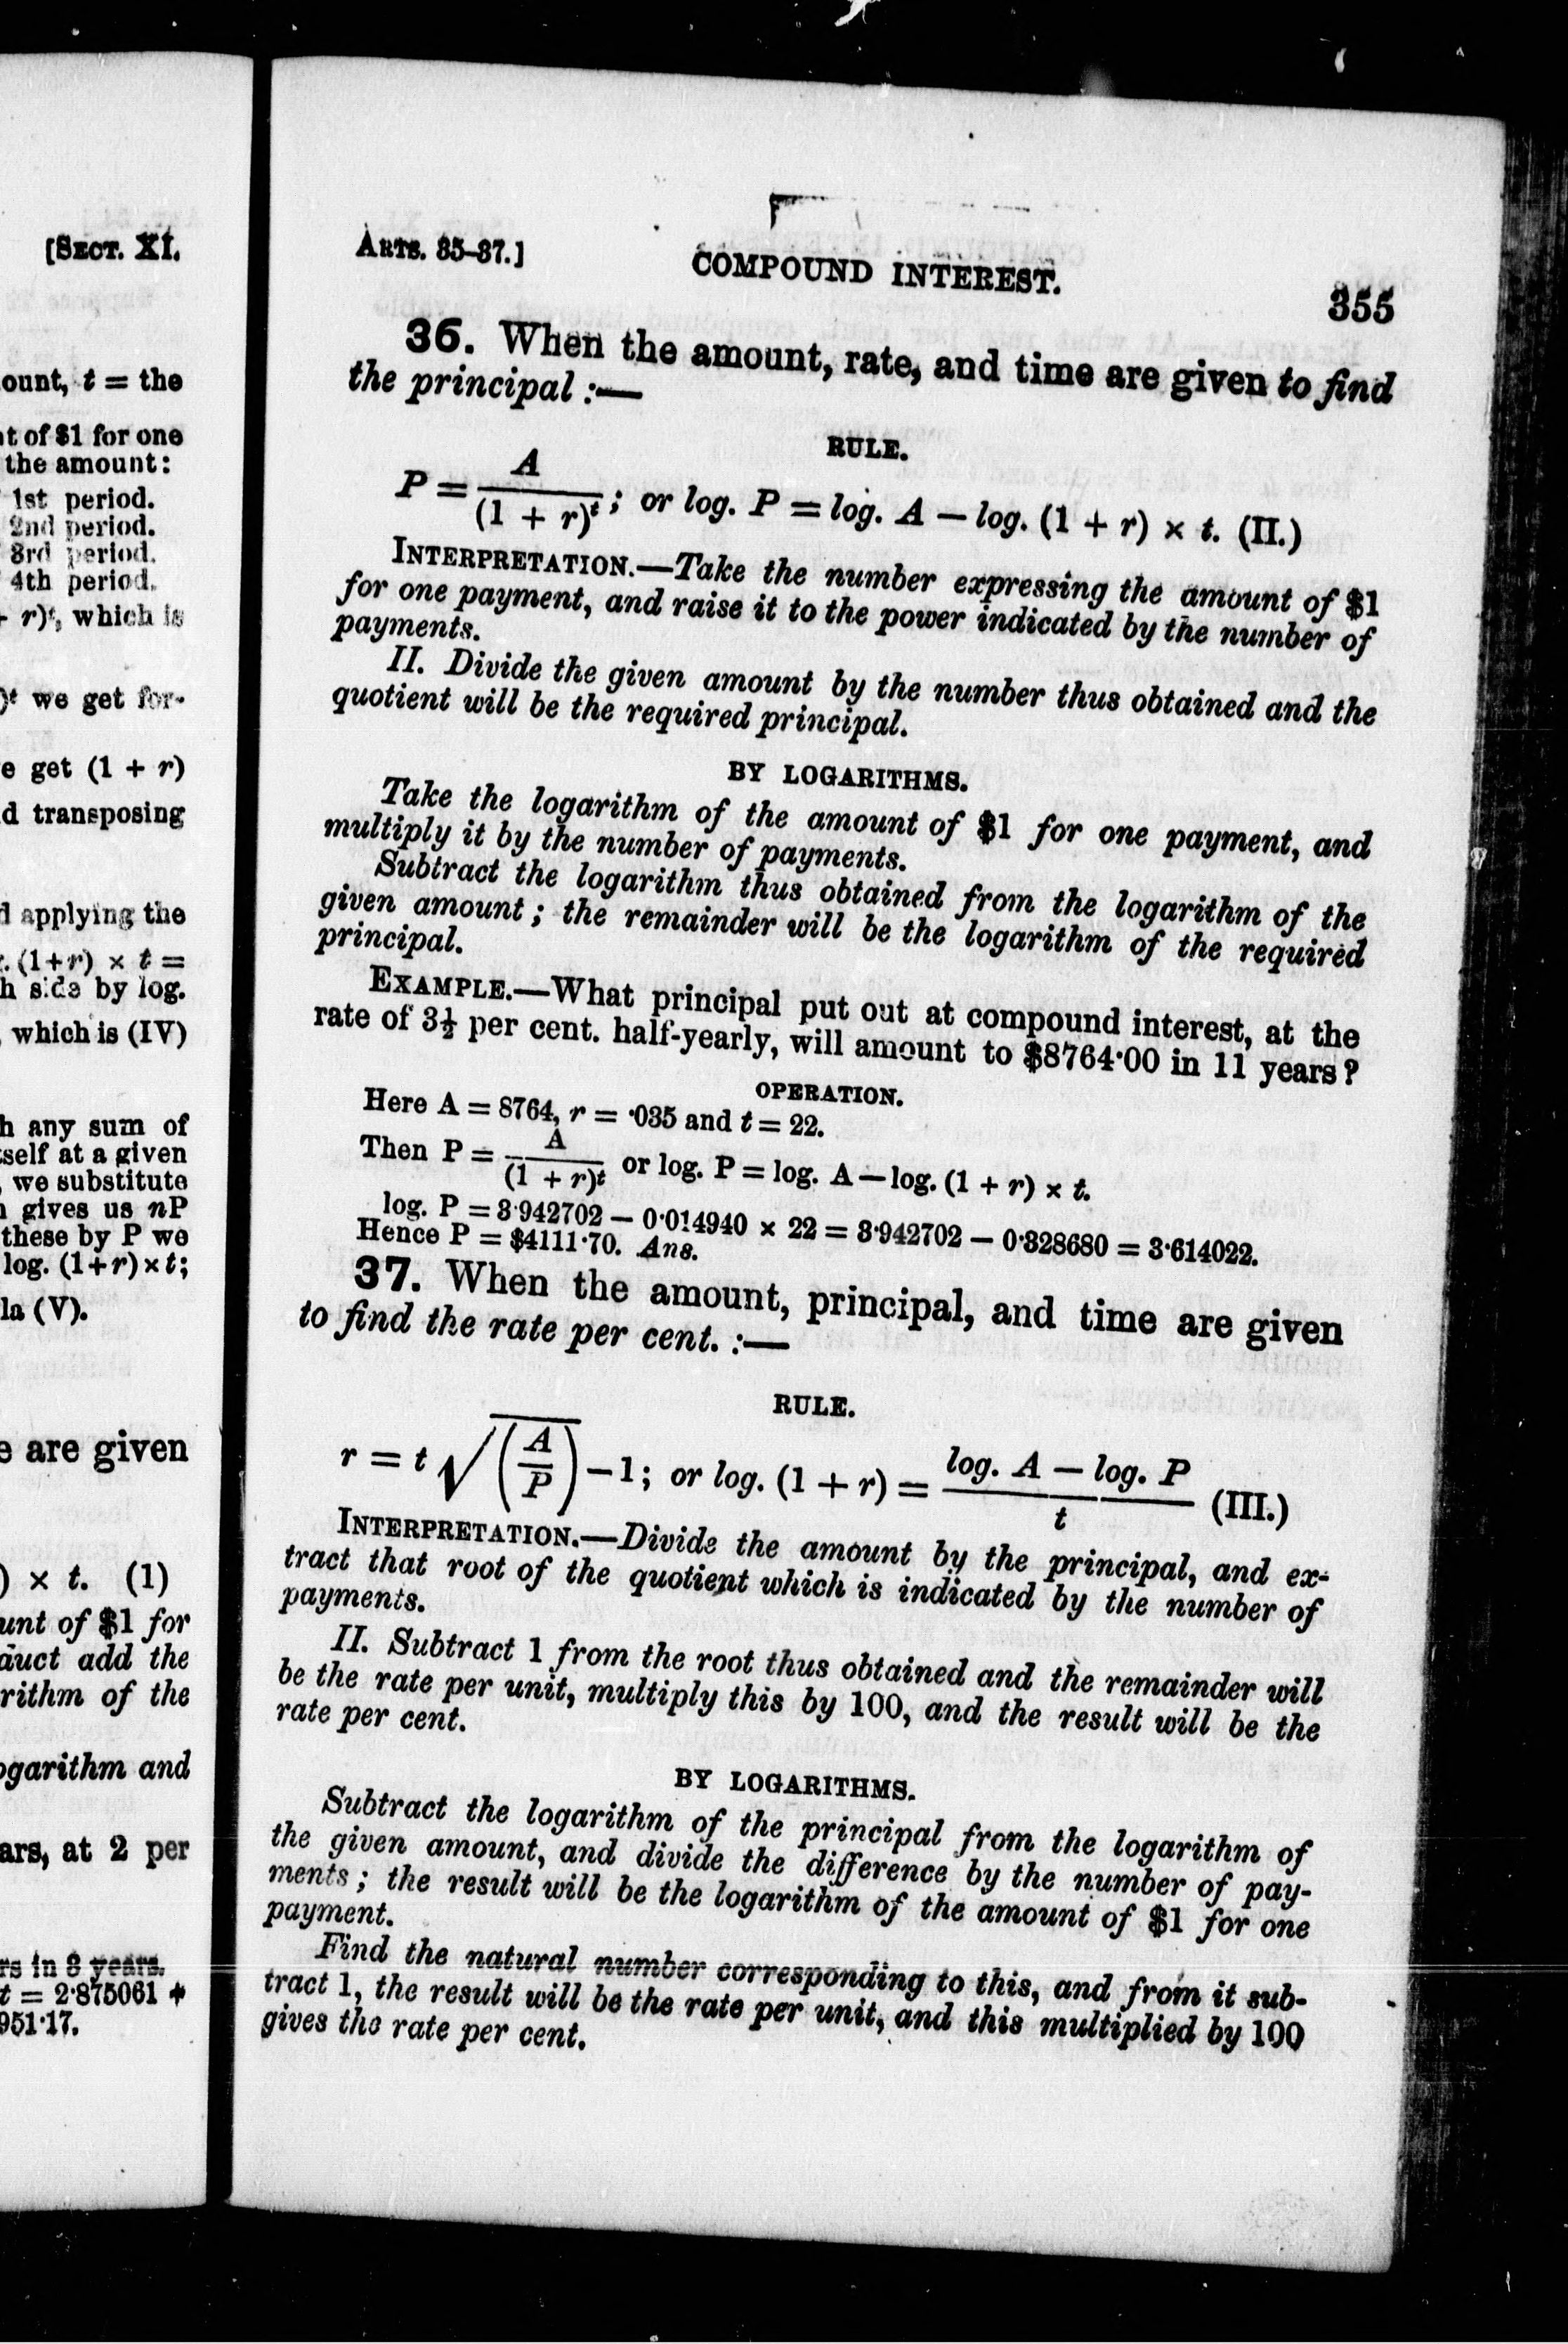 [SECT. XI.
ount, t = the
t of $1 for one
the amount:
1st period.
2nd period.
3rd period.
4th period.
r)ᵗ, which is
)ᵗ we get for-
e get (1 + r)
d transposing
d applying the
. (1+r) × t =
h side by log.
, which is (IV)
h any sum of
tself at a given
, we substitute
n gives us nP
these by P we
log. (1+r)×t;
la (V).
e are given
) × t. (1)
unt of $1 for
duct add the
rithm of the
ogarithm and
ars, at 2 per
rs in 8 years.
t = 2·875061 +
951·17.
ARTS. 35-37.]
COMPOUND INTEREST.
355
36. When the amount, rate, and time are given to find
the principal :—
RULE.
P = A / (1 + r)ᵗ ; or log. P = log. A — log. (1 + r) × t. (II.)
INTERPRETATION.—Take the number expressing the amount of $1
for one payment, and raise it to the power indicated by the number of
payments.
II. Divide the given amount by the number thus obtained and the
quotient will be the required principal.
BY LOGARITHMS.
Take the logarithm of the amount of $1 for one payment, and
multiply it by the number of payments.
Subtract the logarithm thus obtained from the logarithm of the
given amount ; the remainder will be the logarithm of the required
principal.
EXAMPLE.—What principal put out at compound interest, at the
rate of 3½ per cent. half-yearly, will amount to $8764·00 in 11 years ?
OPERATION.
Here A = 8764, r = ·035 and t = 22.
Then P = A / (1 + r)ᵗ or log. P = log. A — log. (1 + r) × t.
log. P = 3·942702 — 0·014940 × 22 = 3·942702 — 0·328680 = 3·614022.
Hence P = $4111·70. Ans.
37. When the amount, principal, and time are given
to find the rate per cent. :—
RULE.
r = t √(A/P) — 1; or log. (1 + r) = log. A — log. P / t (III.)
INTERPRETATION.—Divide the amount by the principal, and ex-
tract that root of the quotient which is indicated by the number of
payments.
II. Subtract 1 from the root thus obtained and the remainder will
be the rate per unit, multiply this by 100, and the result will be the
rate per cent.
BY LOGARITHMS.
Subtract the logarithm of the principal from the logarithm of
the given amount, and divide the difference by the number of pay-
ments ; the result will be the logarithm of the amount of $1 for one
payment.
Find the natural number corresponding to this, and from it sub-
tract 1, the result will be the rate per unit, and this multiplied by 100
gives the rate per cent.